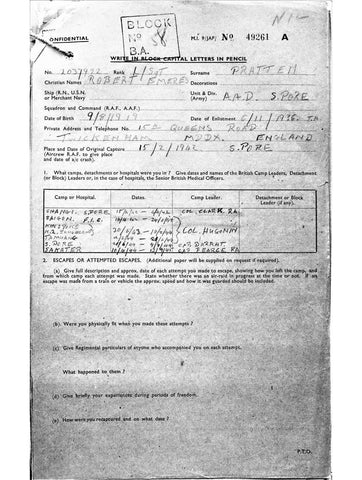 BLOCK
No
B.A.
CONFIDENTIAL
M.I. 9/JAP/ No 49261 A
WRITE IN BLOCK CAPITAL LETTERS IN PENCIL
No. 2037922 Rank L/SGT Surname PRATTEN
Christian Names ROBERT Decorations
Ship (R.N., U.S.N. or Merchant Navy) Unit & Div. (Army) A.A.D. S.PORE
Squadron and Command (R.A.F., A.A.F.)
Date of Birth 9/8/1919 Date of Enlistment
Private Address and Telephone No. 15A QUEENS ROAD
TWICKENHAM MDDX. ENGLAND
Place and Date of Original Capture 15/2/1942 S.PORE
(Aircrew R.A.F. to give place and date of a/c crash).
1. What camps, detachments or hospitals were you in ? Give dates and names of the British Camp Leaders, Detachment (or Block) Leaders or, in case of hospitals, the Senior British Medical Officers.
Camp or Hospital. Dates. Camp Leader. Detachment or Block Leader (if any).
CHANGI. S.PORE COL. CLARK RA.
SAIGON. F.I.C.
COL. HUGONIN
S. PORE
2. ESCAPES OR ATTEMPTED ESCAPES. (Additional paper will be supplied on request if required).
(a) Give full description and approx. date of each attempts you made to escape, showing how you left the camp, and from which camp each attempt was made. State whether there was an air-raid in progress at the time or not. If an escape was made from a train or vehicle the approx. speed and how it was guarded should be included.
(b) Were you physically fit when you made these attempts ?
(c) Give Regimental particulars of anyone who accompanied you on each attempt.
What happened to them ?
(d) Give briefly your experiences during periods of freedom.
(e) How were you recaptured and on what date ?
P.T.O.